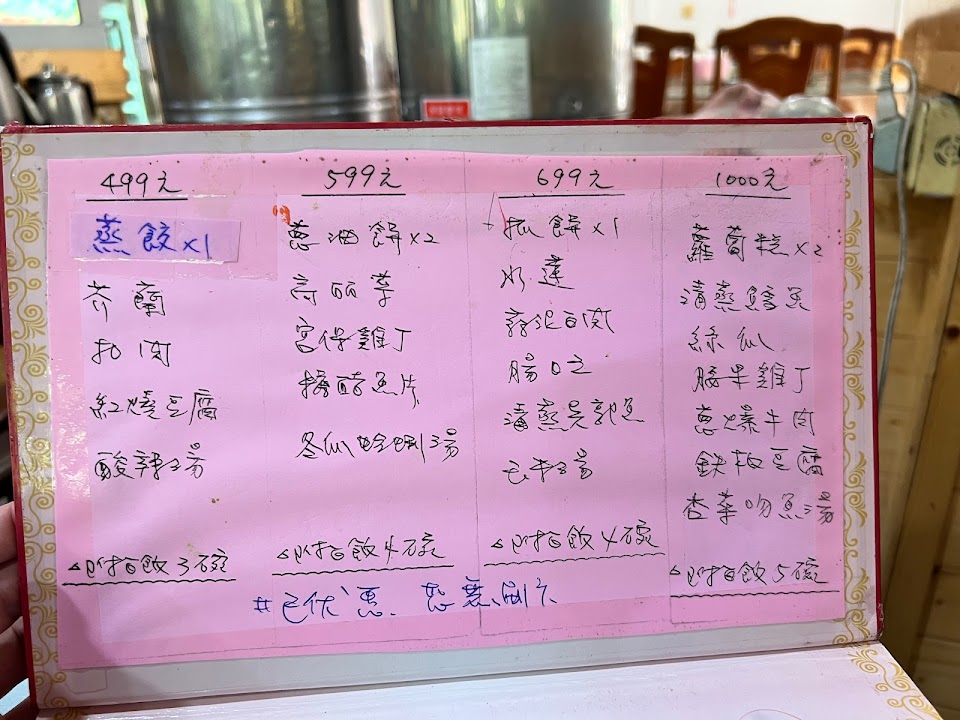 499元
蒸餃x1
芥蘭
扣肉
紅燒豆腐
酸辣湯
△附白飯3碗
599元
蔥油餅x2
高麗菜
宮保雞丁
糖醋魚片
冬瓜蛤蜊湯
△附白飯4碗
699元
抓餅x1
水蓮
蒜泥白肉
腸旺
清蒸吳郭魚
△附白飯4碗
1000元
蘿蔔糕x2
清蒸鱈魚
絲瓜
腰果雞丁
蔥爆牛肉
鉄板豆腐
杏菜吻魚湯
△附白飯5碗
#已优惠.恕無刷卡